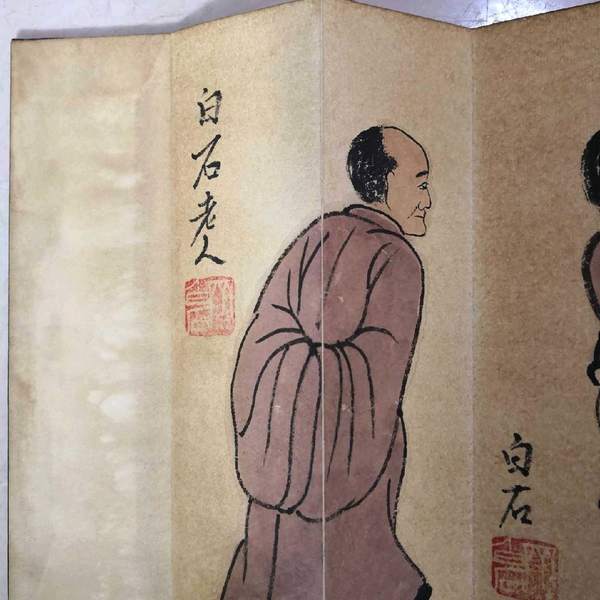 白石老人
白石